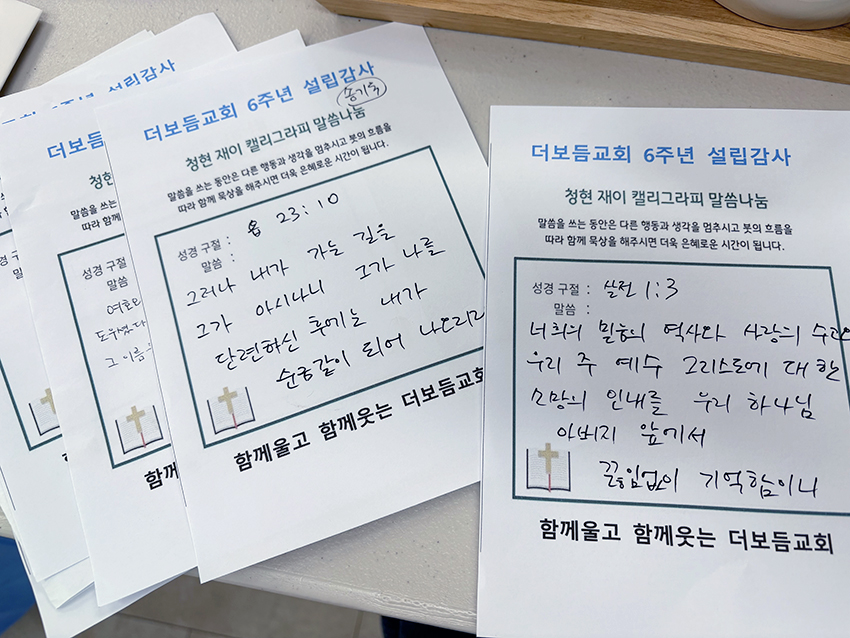 더보듬교회 6주년 설립감사
송기숙
청현 재이 캘리그라피 말씀나눔
말씀을 쓰는 동안은 다른 행동과 생각을 멈추시고 붓의 흐름을
따라 함께 묵상을 해주시면 더욱 은혜로운 시간이 됩니다.
성경 구절 : 욥 23:10
말씀 :
그러나 내가 가는 길을
그가 아시나니 그가 나를
단련하신 후에는 내가
순금같이 되어 나오리라
함께울고 함께웃는 더보듬교회
더보듬교회 6주년 설립감사
청현 재이 캘리그라피 말씀나눔
말씀을 쓰는 동안은 다른 행동과 생각을 멈추시고 붓의 흐름을
따라 함께 묵상을 해주시면 더욱 은혜로운 시간이 됩니다.
성경 구절 : 살전 1:3
말씀 :
너희의 믿음의 역사와 사랑의 수고와
우리 주 예수 그리스도에 대한
소망의 인내를 우리 하나님
아버지 앞에서
끊임없이 기억함이니
함께울고 함께웃는 더보듬교회
더보듬
설립감사
청현
말씀을 쓰는
따라 함께
성경 구절
말씀
여호와
도우셨다
그 이름을
함께